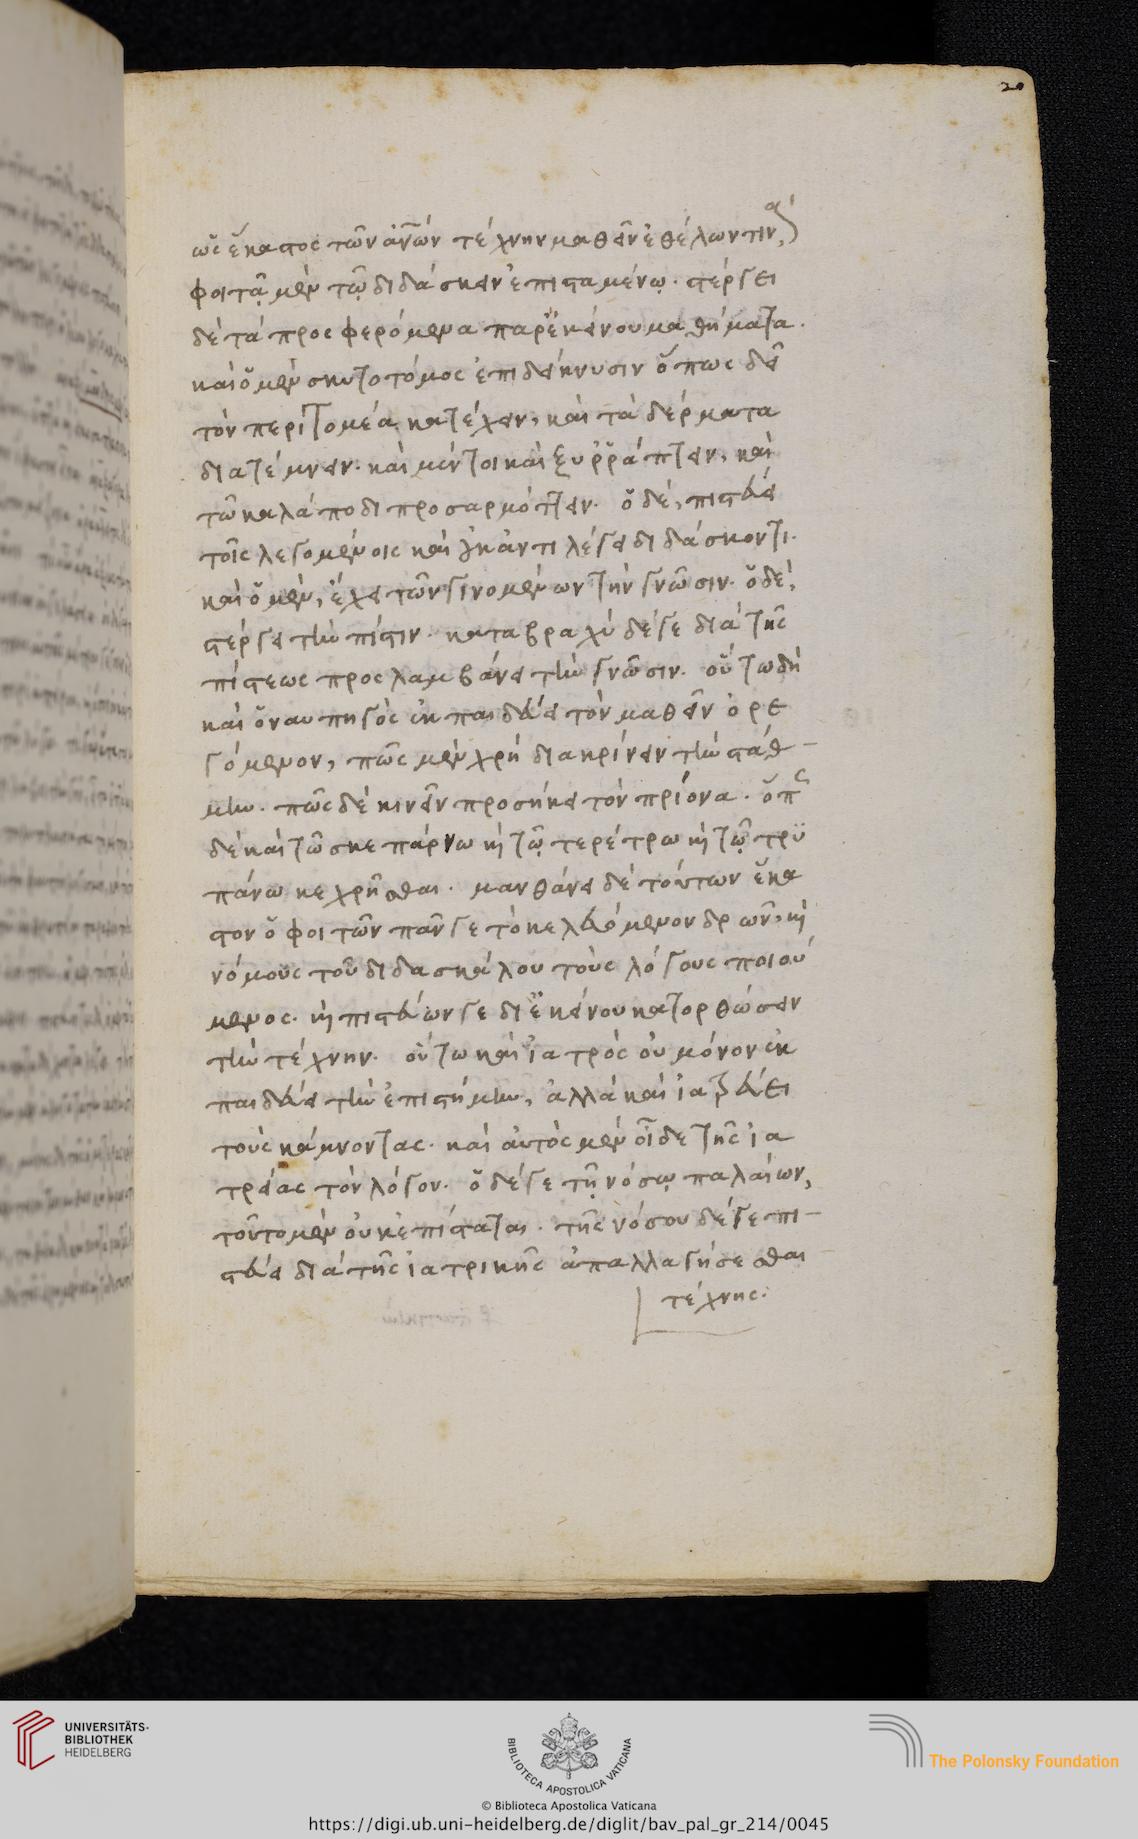 20
ὡς ἕκαστος τῶν ἀνῶν τέχνην μαθεῖν ἐθέλων τινά,
φοιτᾷ μὲν τῷ διδάσκειν ἐπισταμένῳ. στέργει
δὲ τὰ προσφερόμενα παρ' ἐκείνου μαθήματα.
καὶ ὁ μὲν σκυτοτόμος ἐπιδείκνυσιν ὅπως δεῖ
τὸν περιτομέα κατέχειν, καὶ τὰ δέρματα
διατέμνειν. καὶ μέντοι καὶ ξυῤῥάπτειν, καὶ
τῶ καλάποδι προσαρμόττειν. ὁ δέ, πιστεύει
τοῖς λεγομένοις καὶ οὐκ ἀντιλέγει διδάσκοντι.
καὶ ὁ μὲν, ἔχει τῶν γινομένων τὴν γνῶσιν. ὁ δέ,
στέργει τὴν πίστιν. καταβραχὺ δέ γε διὰ τῆς
πίστεως προσλαμβάνει τὴν γνῶσιν. οὕτω δὴ
καὶ ὁ ναυπηγὸς ἐκπαιδεύει τὸν μαθεῖν ὀρε
γόμενον, πῶς μὲν χρὴ διακρίνειν τὴν στάθ
μην. πῶς δὲ κινεῖν προσήκει τὸν πρίονα. ὅπως
δὲ καὶ τῶ σκεπάρνω καὶ τῷ τερέτρω καὶ τῷ τρυ
πάνω κεχρῆσθαι. μανθάνει δὲ τούτων ἕκα
στον ὁ φοιτῶν πᾶν γε τὸ κελευόμενον δρῶν, καὶ
νόμους τοῦ διδασκάλου τοὺς λόγους ποιού
μενος. καὶ πιστεύων γε δι' ἐκείνου κατορθώσειν
τὴν τέχνην. οὕτω καὶ ἰατρὸς οὐ μόνον ἐκ
παιδεύει τὴν ἐπιστήμην, ἀλλὰ καὶ ἰατρεύει
τοὺς κάμνοντας. καὶ αὐτὸς μὲν οἶδε τῆς ἰα
τρείας τὸν λόγον. ὁ δέ γε τῇ νόσῳ παλαίων,
τοῦτο μὲν οὐκ ἐπίσταται. τῆς νόσου δέ γε πι
στεύει διὰ τῆς ἰατρικῆς ἀπαλλαγήσεσθαι
τέχνης.
UNIVERSITÄTS-
BIBLIOTHEK
HEIDELBERG
BIBLIOTECA APOSTOLICA VATICANA
The Polonsky Foundation
© Biblioteca Apostolica Vaticana
https://digi.ub.uni-heidelberg.de/diglit/bav_pal_gr_214/0045